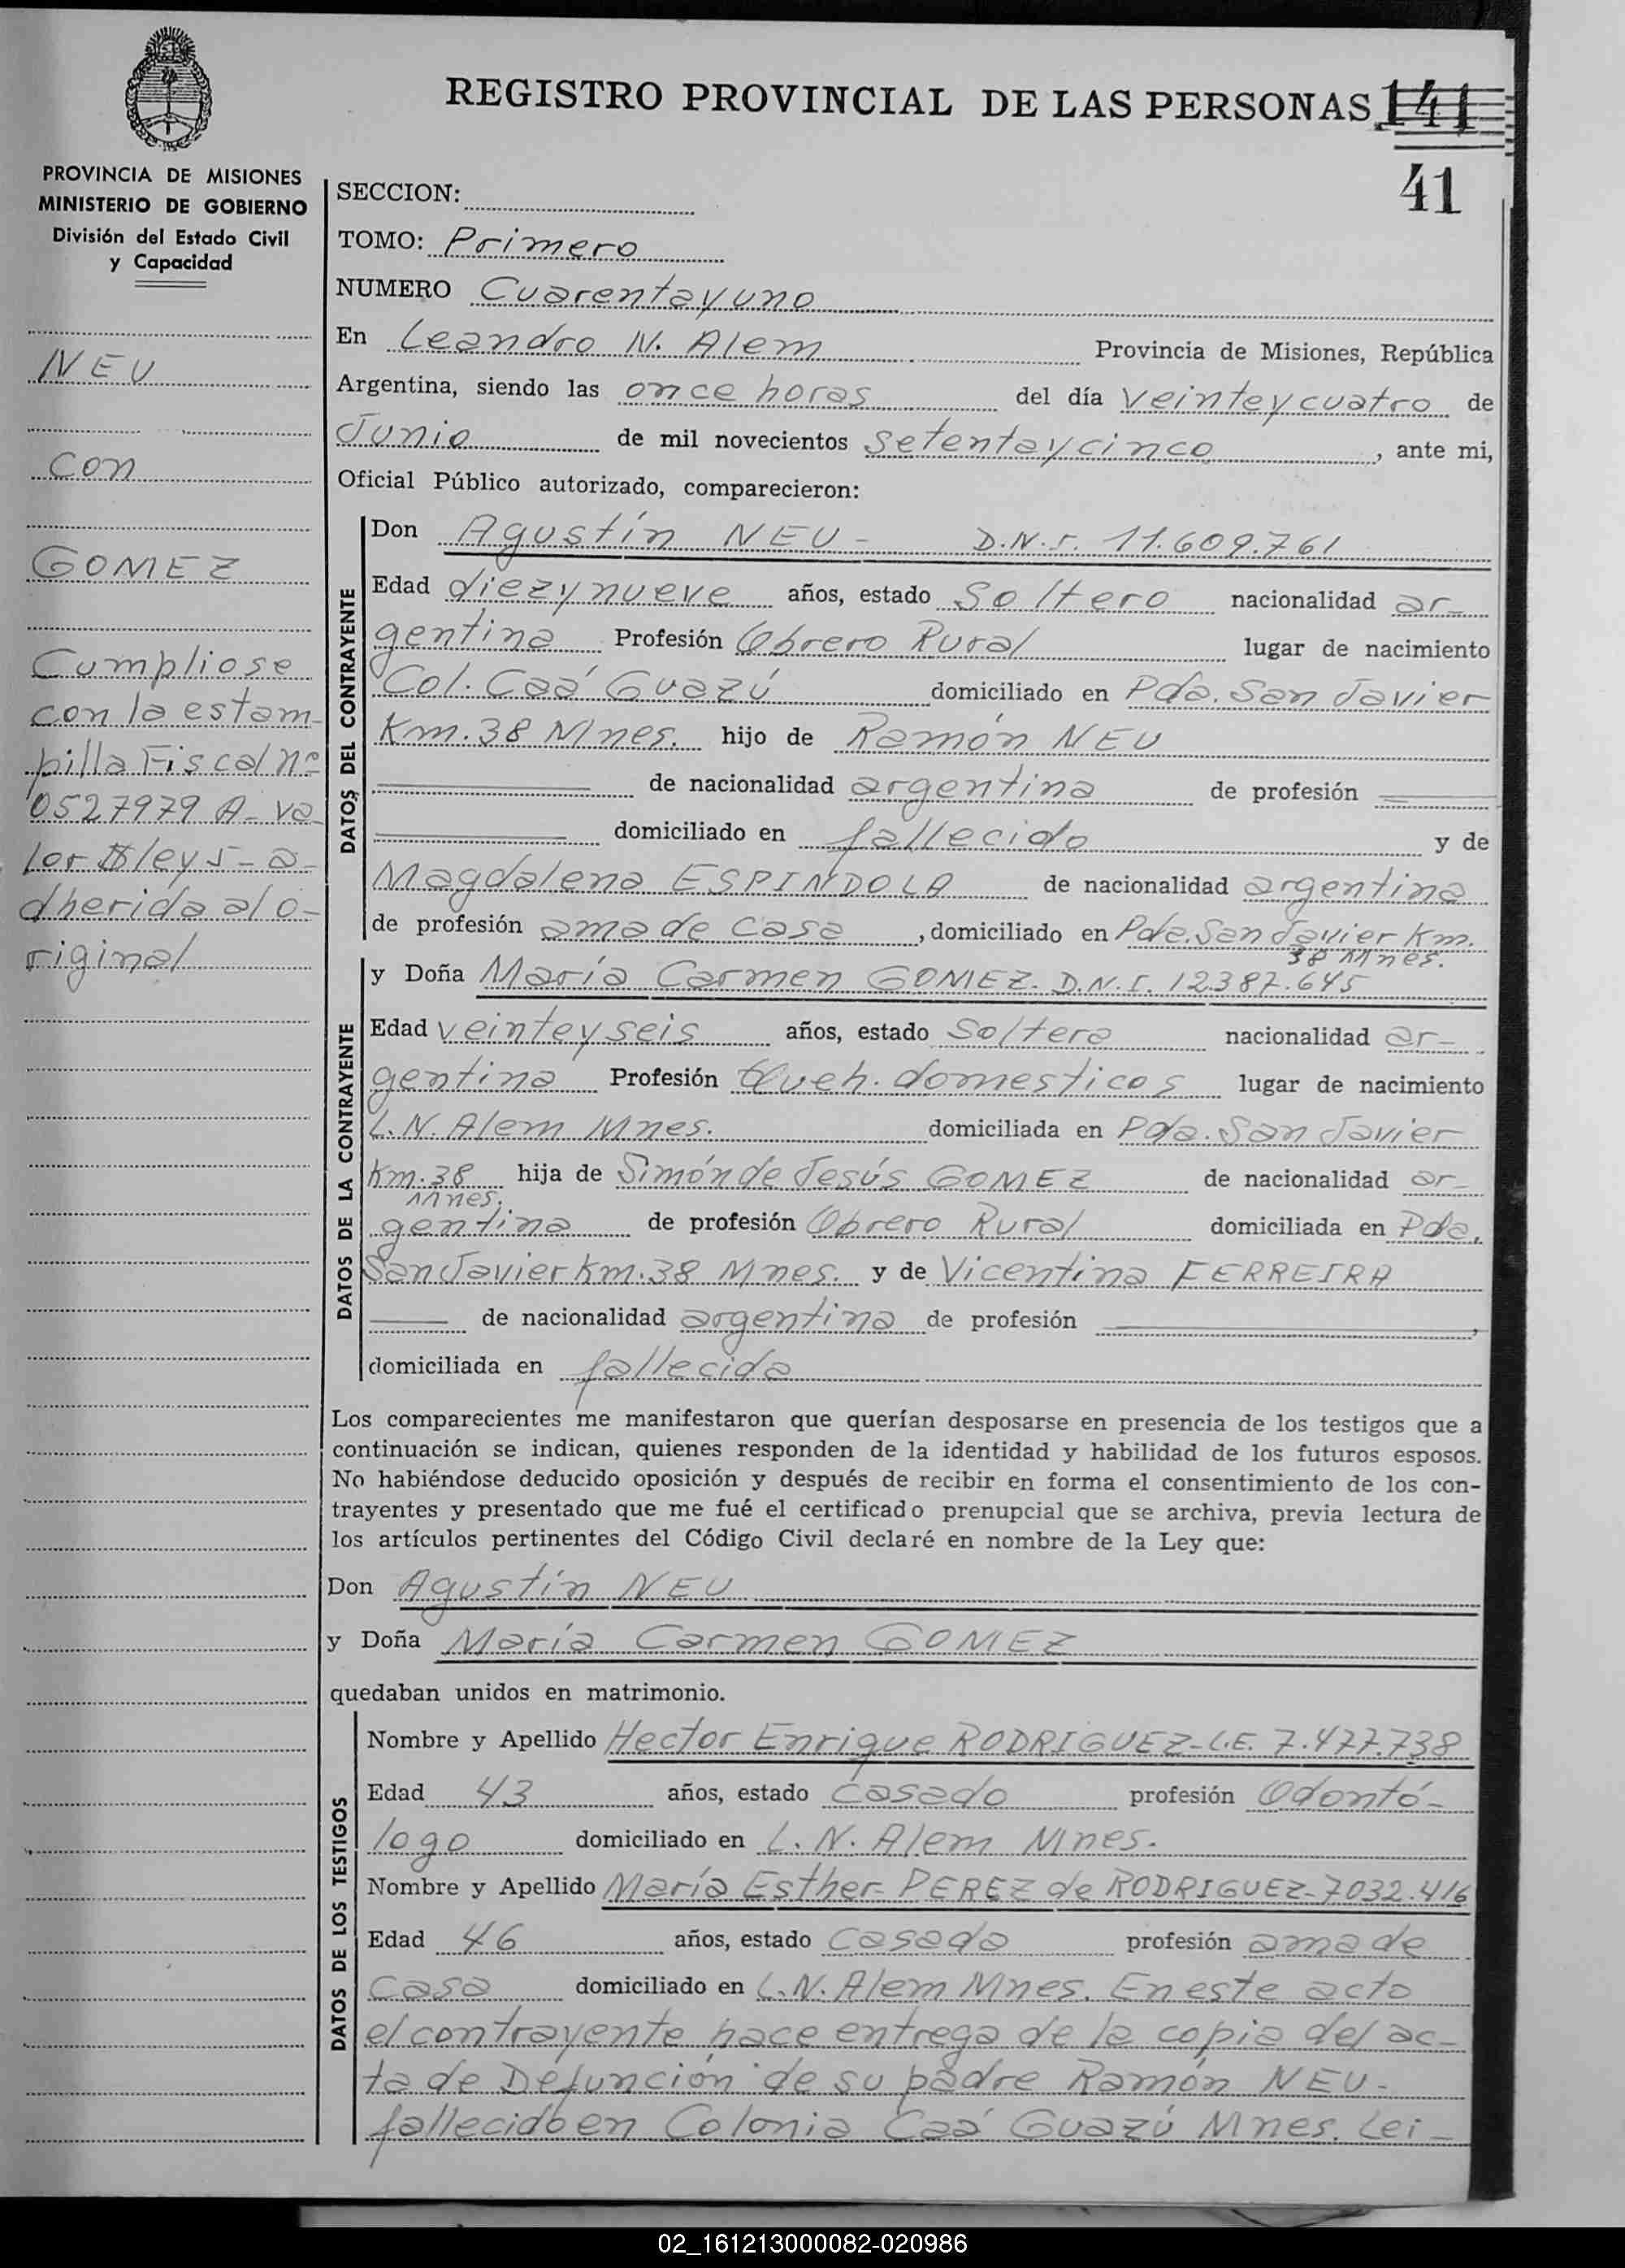 REGISTRO PROVINCIAL DE LAS PERSONAS 141
41
PROVINCIA DE MISIONES
MINISTERIO DE GOBIERNO
División del Estado Civil
y Capacidad
NEU
con
GOMEZ
Cumpliose
con la estam-
pilla Fiscal nº
0527979 A- va-
lor $ ley 5- a-
dherida al o-
riginal
SECCION:
TOMO: Primero
NUMERO Cuarentayuno
En Leandro N. Alem Provincia de Misiones, República
Argentina, siendo las once horas del día veinteycuatro de
Junio de mil novecientos setentaycinco, ante mi,
Oficial Público autorizado, comparecieron:
DATOS DEL CONTRAYENTE
Don Agustín NEU - D.N.I. 11.609.761
Edad diezynueve años, estado Soltero nacionalidad ar-
gentina Profesión Obrero Rural lugar de nacimiento
Col. Caá Guazú domiciliado en Pda. San Javier
Km. 38 Mnes. hijo de Ramón NEU
de nacionalidad argentina de profesión
domiciliado en fallecido y de
Magdalena ESPINDOLA de nacionalidad argentina
de profesión ama de casa, domiciliado en Pda. San Javier Km.
38 Mnes.
DATOS DE LA CONTRAYENTE
y Doña María Carmen GOMEZ. D.N.I. 12.387.645
Edad veinteyseis años, estado Soltera nacionalidad ar-
gentina Profesión Queh. domesticos lugar de nacimiento
L.N. Alem Mnes. domiciliada en Pda. San Javier
Km. 38 hija de Simón de Jesús GOMEZ de nacionalidad ar-
Mnes.
gentina de profesión Obrero Rural domiciliada en Pda.
San Javier Km. 38 Mnes. y de Vicentina FERREIRA
de nacionalidad argentina de profesión
domiciliada en fallecida
Los comparecientes me manifestaron que querían desposarse en presencia de los testigos que a
continuación se indican, quienes responden de la identidad y habilidad de los futuros esposos.
No habiéndose deducido oposición y después de recibir en forma el consentimiento de los con-
trayentes y presentado que me fué el certificado prenupcial que se archiva, previa lectura de
los artículos pertinentes del Código Civil declaré en nombre de la Ley que:
Don Agustín NEU
y Doña María Carmen GOMEZ
quedaban unidos en matrimonio.
DATOS DE LOS TESTIGOS
Nombre y Apellido Hector Enrique RODRIGUEZ- L.E. 7.477.738
Edad 43 años, estado casado profesión Odontó-
logo domiciliado en L. N. Alem Mnes.
Nombre y Apellido María Esther PEREZ de RODRIGUEZ- 7032.416
Edad 46 años, estado casada profesión ama de
casa domiciliado en L.N. Alem Mnes. En este acto
el contrayente hace entrega de la copia del ac-
ta de Defunción de su padre Ramón NEU-
fallecido en Colonia Caá Guazú Mnes. Lei-
02_161213000082-020986